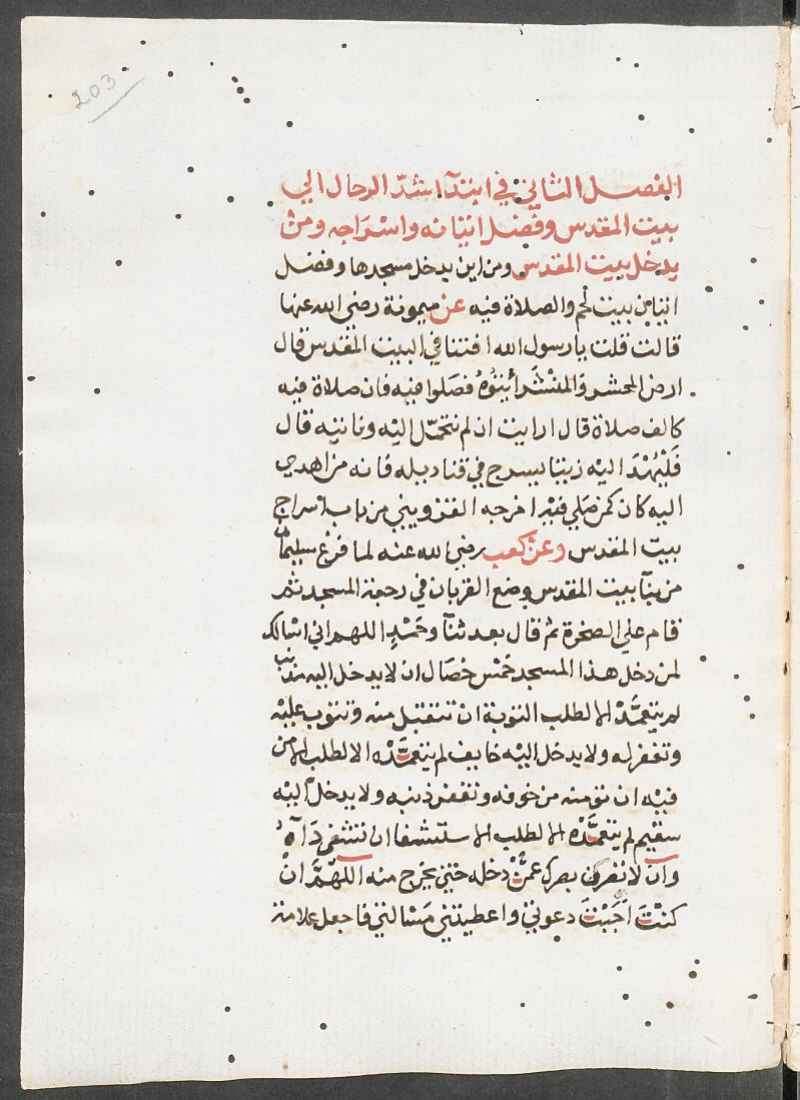 203
الفصل الثاني في ابتدآ شدّ الرحال الي
بيت المقدس وفضل اتيانه واسْرَاجه ومن
يدخل بيت المقدس ومن اين يدخل مسجدها وفضل
اتيان بيت لحم والصلاة فيه عن ميمونة رضي الله عنها
قالت قلت يا رسول الله افتنا في البيت المقدس قال
ارض المحشر وَالمنْشَر ائيتوُهُ فصَلوا فيه فان صلاة فيه
كالف صلاة قال ارايت ان لم نتحمّل اليْه وناتيه قال
فَلْيُهْدَ اليْه زيتا يسرج في قناديله فانه من اهدي
اليه كان كمن صَلي فيه اخرجه القزويني من باب اسراج
بيت المقدس وعن كعب رضي الله عنه لما فرغ سليمان
من بنآ بيت المقدس وضع القربان في رحبة المسجد ثم
قام علي الصخرة ثم قال بعد ثنآ وحَمْدٍ اللهم اني اسالك
لمن دخل هذا المسجد خمْس خصَال ان لا يدخل اليه مذنب
لم يتعمَّدْ الا لطلب التوبة ان تتقبل منه وتتوب عليْه
وتغفر له ولا يدخل اليْه خايف لم يتعمَّدْه الا لطلب الامن
فيْه ان تومنه من خوفه وتغفر ذنبه ولا يدخل اليْه
سقيم لم يتعمَّدْه الا لطلب الاستشفا ان تشفي دَآهُ
وان لا تصرف بصرك عمَّنْ دخله حتي يخرج منه اللهُمَّ انْ
كنْتَ اَجَبْتَ دعوتي واعطيتني مَسْالتي فاجعل علامة